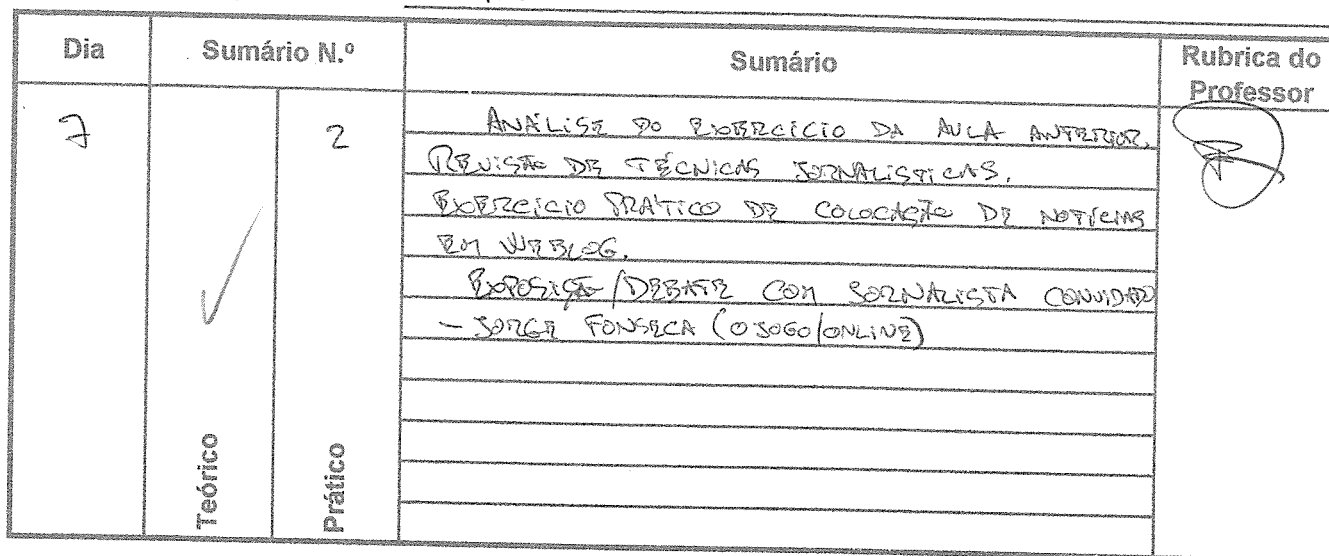 Dia
Sumário N.º
Sumário
Rubrica do
Professor
7
2
ANÁLISE DO EXERCÍCIO DA AULA ANTERIOR.
REVISÃO DE TÉCNICAS JORNALÍSTICAS.
EXERCÍCIO PRÁTICO DE COLOCAÇÃO DE NOTÍCIAS
EM WEBLOG.
EXPOSIÇÃO/DEBATE COM JORNALISTA CONVIDADO
- JORGE FONSECA (O JOGO/ONLINE)
Teórico
Prático